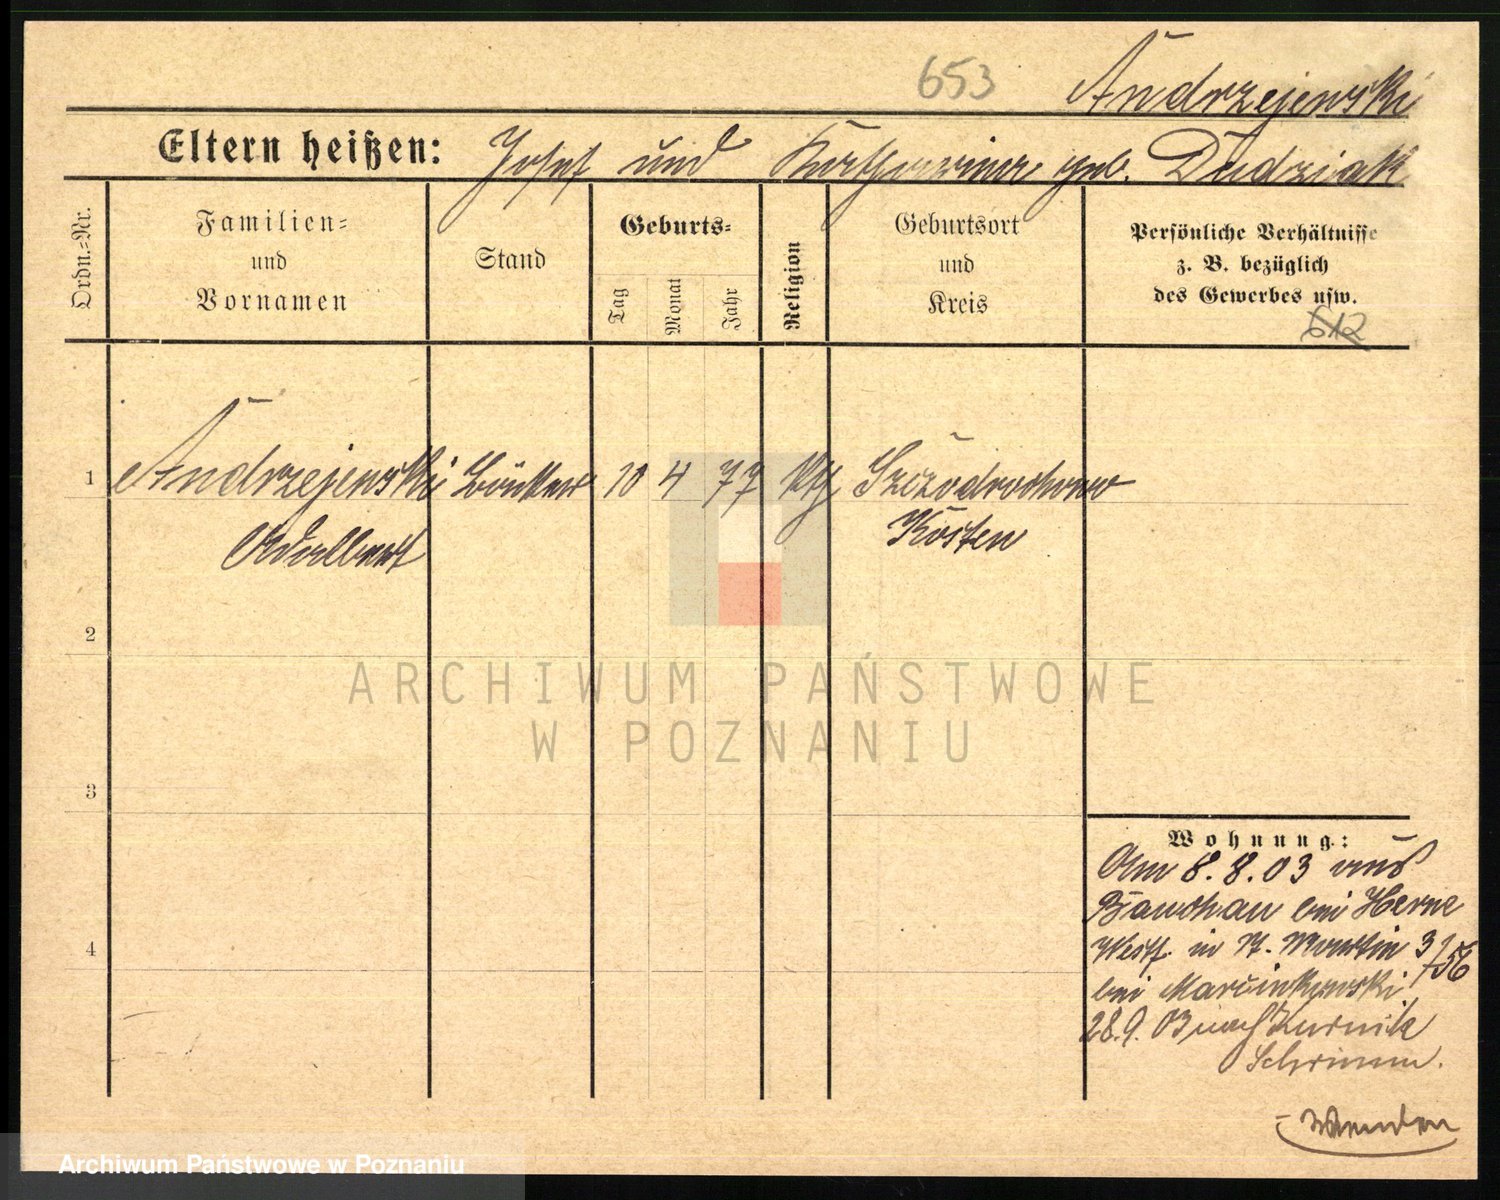 653
Andrzejewski
Eltern heißen: Josef und Katharina geb. Dudziak
Ordn.=Nr.
Familien=
und
Vornamen
Stand
Geburts=
Tag
Monat
Jahr
Religion
Geburtsort
und
Kreis
Persönliche Verhältnisse
z. B. bezüglich
des Gewerbes usw.
612
1 Andrzejewski 10 4 77 kth
Adalbert Kosten
2
3
4
Wohnung:
Am 8.8.03 aus
bei Herne
Westf. in St. Martin 3
bei Marcinkowski
28.9.03 nach Kurnik
Schrimm.
ARCHIWUM PAŃSTWOWE
W POZNANIU
Archiwum Państwowe w Poznaniu